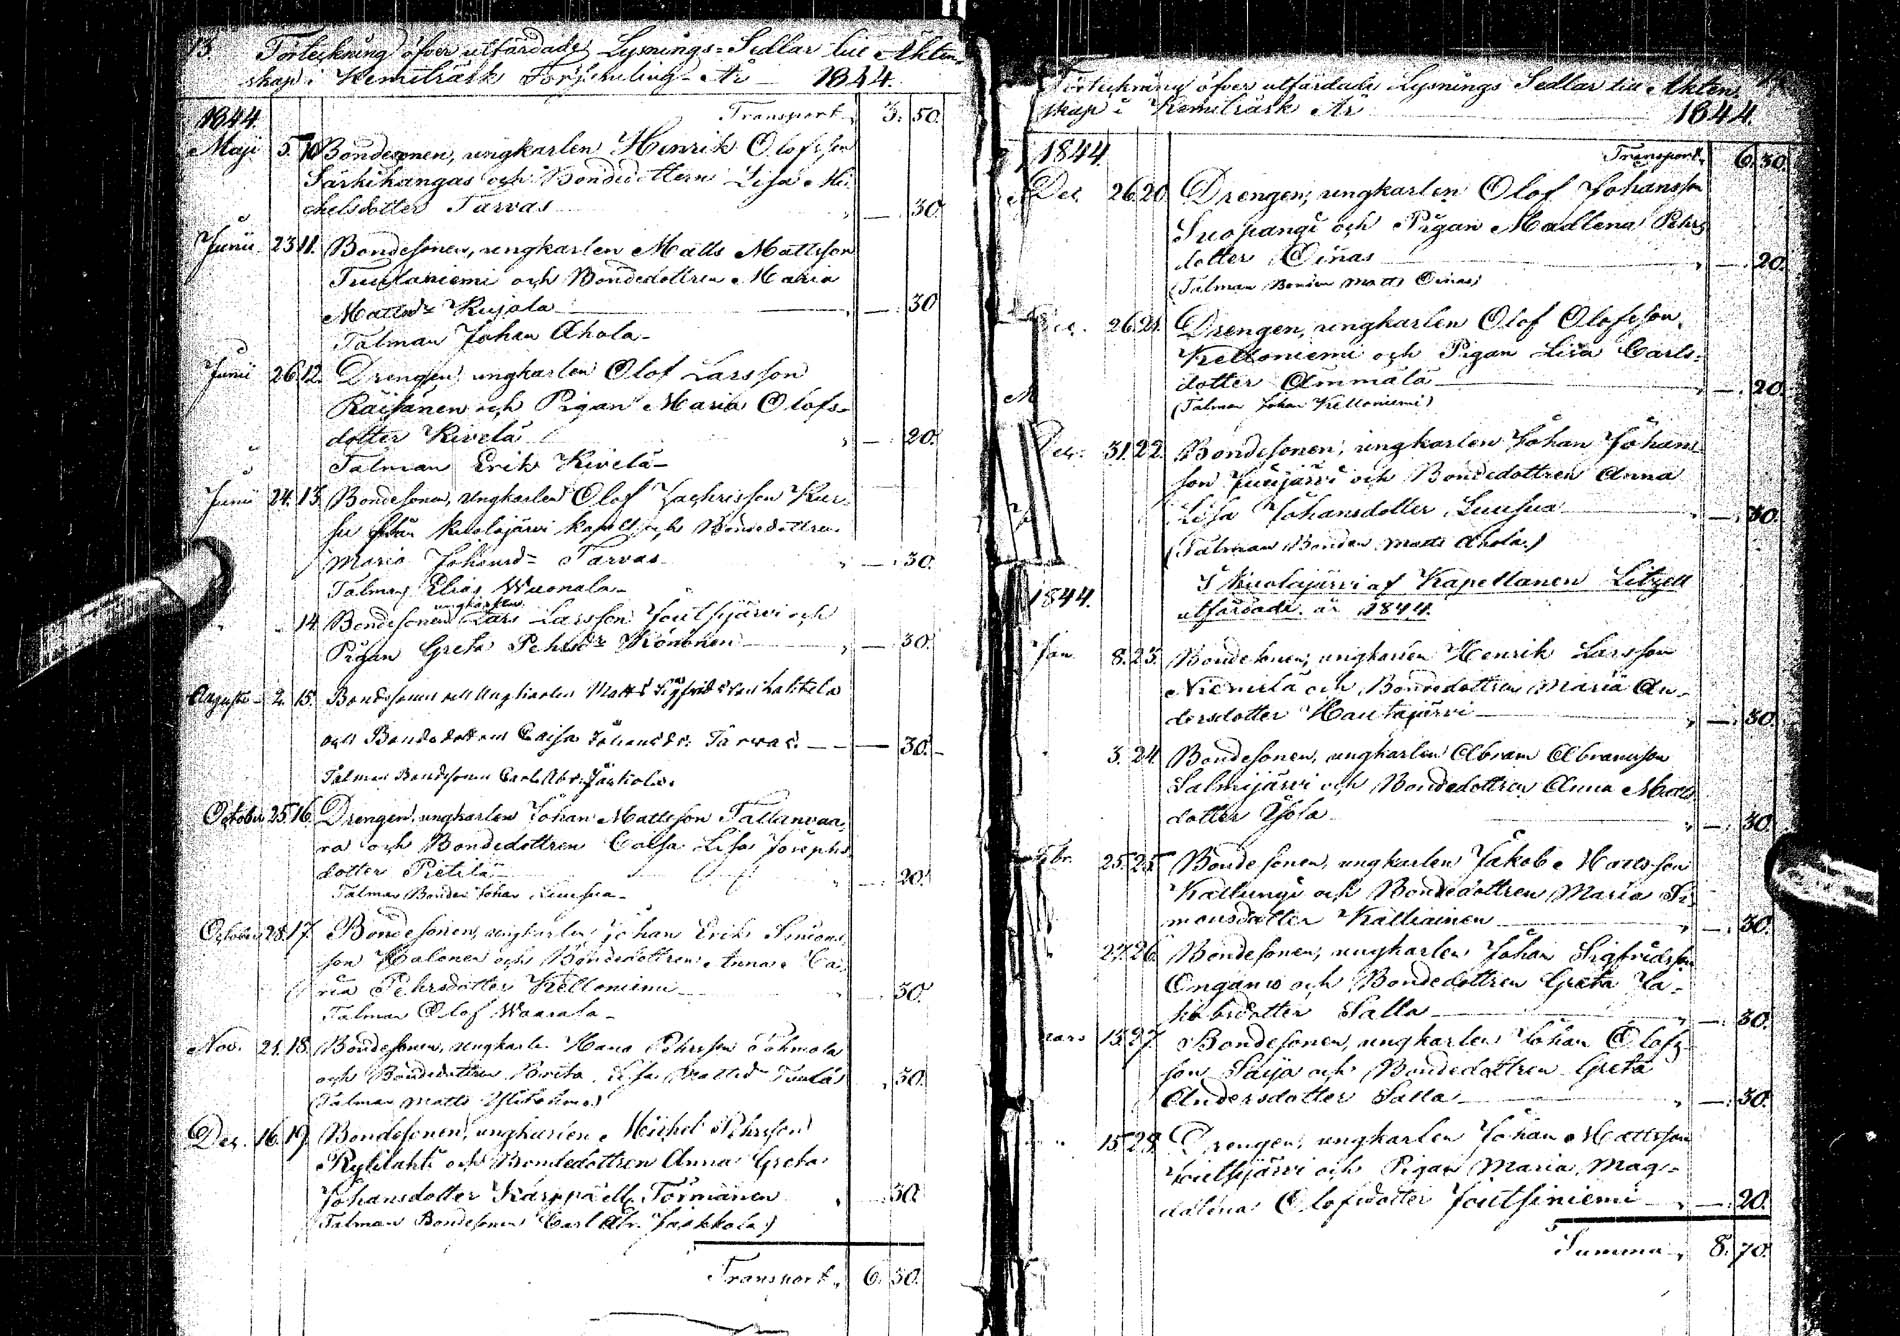 13. Förteckning öfver utfärdade Lysnings-Sedlar till Äkten-
skap i Kemiträsk Församling År 1844.
1844. Transport 3. 50.
Maji 5. 10 Bondesonen, ungkarlen Henrik Olofsson
Särkikangas och Bondedottern Lisa Mi-
chelsdotter Tarvas — 30.
Junii 23 11. Bondesonen, ungkarlen Matts Mattsson
Tuulaniemi och Bondedottren Maria
Mattsdr Kujala — 30
Talman Johan Ahola
Junii 26. 12. Drengen ungkarlen Olof Larsson
Räisänen och Pigan Maria Olofs-
dotter Kivelä — 20.
Talman Erik Kivelä
Junii 24. 13. Bondesonen, ungkarlen Olof Zachrisson Kur-
su från Kuolajärvi Kapell och Bondedottren
Maria Johansd- Tarvas — 30.
Talman Elias Wuonala
ungkarlen
14. Bondesonen Lars Larsson Joutsijärvi och
Pigan Greta Pehrsdr Könönen — 30.
Augusti 2. 15. Bondesonen och Ungkarlen Matts Sigfridsson Halkila
och Bondedottren Caisa Johansdr. Tarvas — 30.
Talman Bondesonen Carl Abr. Jaakkola.
October 25. 16. Drengen, ungkarlen Johan Mattsson Tallanvaa-
ra och Bondedottren Caisa Lisa Josephs-
dotter Pietilä — 20.
Talman Bonden Johan Luusua
October 28. 17. Bondesonen, ungkarlen Johan Erik Simons-
son Halonen och Bondedottren Anna Ca-
Pehrsdotter Kelloniemi — 30.
Talman Olof Waarala
Nov. 21. 18. Bondesonen, ungkarlen Hans Pehrsson Pohmola
och Bondedottren Brita Lisa Mattsd- — 30.
(Talman Matts
Dec. 16. 19. Bondesonen, ungkarlen Michel Pehrsson
Kylilahti och Bondedottren Anna Greta
Johansdotter Karppa ell. Törmänen — 30.
(Talman Bondesonen Carl Abr. Jaakkola)
Transport 6. 30.
Förteckning öfver utfärdade Lysnings Sedlar till Äkten-
skap i Kemiträsk År 1844.
1844. Transport 6. 30.
Dec. 26. 20. Drengen, ungkarlen Olof Johansson
Suopangi och Pigan Madlena Pehrs-
dotter Oinas — 20.
(Talman Bonden Matts Oinas)
26. 21. Drengen, ungkarlen Olof Olofsson
Kelloniemi och Pigan Lisa Carls-
dotter Ämmälä — 20.
(Talman Johan Kelloniemi)
Dec. 31. 22. Bondesonen, ungkarlen Johan Johans-
son och Bondedottren Anna
Lisa Johansdotter Luusua — 30.
(Talman Bonden Matts Ahola.)
I Kuolajärvi af Kapellanen Litzell
utfärdade år 1844.
1844.
Jan 8. 23. Bondesonen, ungkarlen Henrik Larsson
Niemilä och Bondedottren Maria An-
dersdotter Hautajärvi — 30.
3. 24. Bondesonen, ungkarlen Abram Abramsson
Salmijärvi och Bondedottren Anna Matts-
dotter Isola — 30.
Febr. 25. 25. Bondesonen, ungkarlen Jakob Mattsson
Kallungi och Bondedottren Maria Si-
monsdotter Kalliainen — 30.
27. 26. Bondesonen, ungkarlen Johan Sigfridsson
Ongamo och Bondedottren Greta Ja-
kobsdotter Salla — 30.
mars 15. 27. Bondesonen, ungkarlen Johan Olofs-
son Saija och Bondedottren Greta
Andersdotter Salla — 30.
15. 28. Drengen, ungkarlen Johan Mattsson
Joutsijärvi och Pigan Maria Mag-
dalena Olofsdotter Joutsiniemi — 20.
Summa 8. 70.